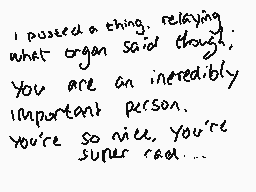 i posted a thing. relaying
what organ said though;
You are an incredibly
important person.
You're so nice, You're
super rad...